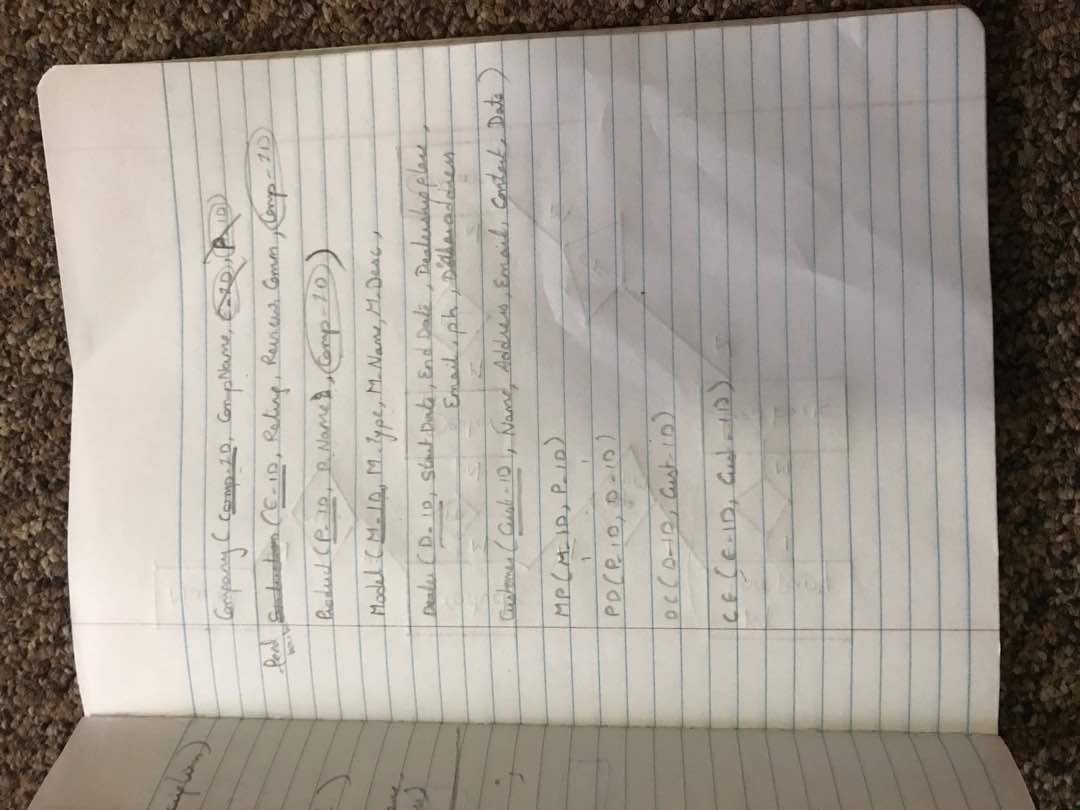 Company ( Comp-ID, CompName, E-ID, P-ID)
Feed (E-ID, Rating, Review, Comm, Comp-ID
Product (P-ID, P.Name, Comp-ID)
Model (M-ID, M.Type, M.Name, M.Desc,
Dealer (D-ID, Start Date, End Date, Dealership place,
Email, ph, address
Customer (Cust-ID, Name, Address, Email, Contact, Date)
MP(M-ID, P-ID)
PD(P-ID, D-ID)
DC(D-ID, Cust-ID)
CE(E-ID, Cust-ID)